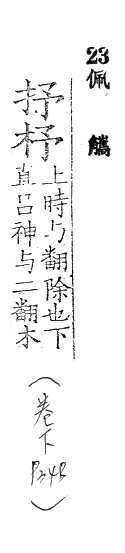 23佩觿
抒杼上時与翻除也下
直呂神与二翻木
(巻下
P24R)